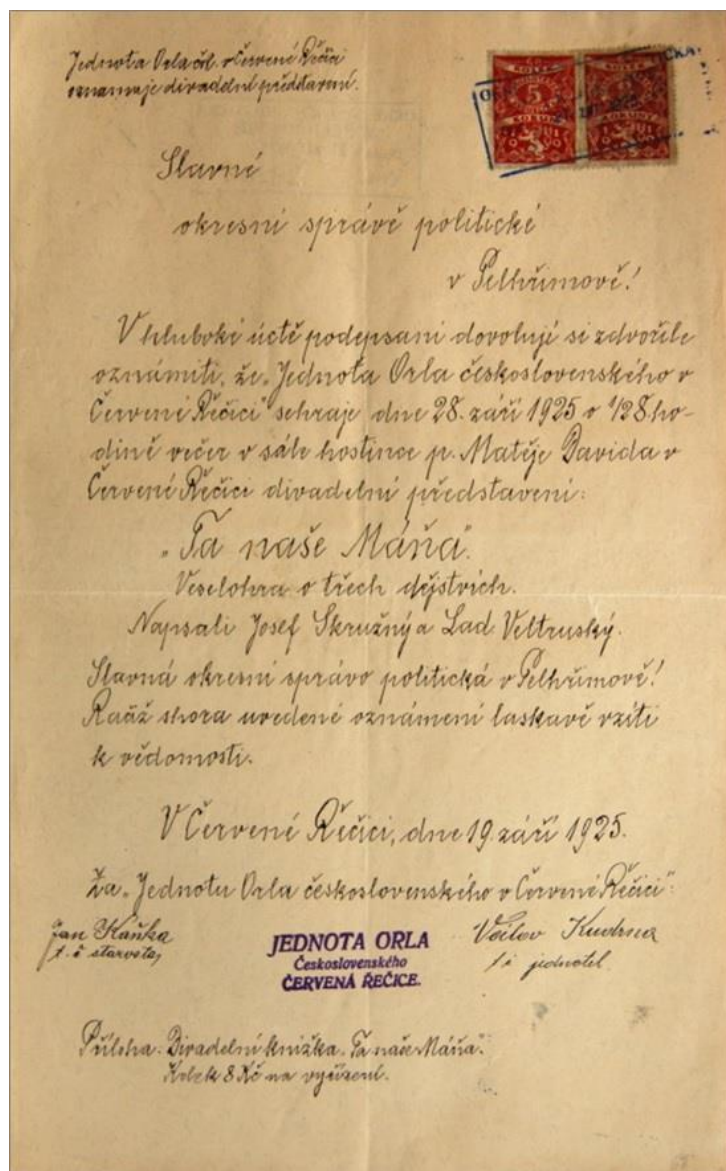 Jednota Orla čsl. v Červené Řečici
oznamuje divadelní představení.
KOLEK KOLEK
5
KORUN KORUNY
1919
Slavné
okresní správě politické
v Pelhřimově!
V hluboké úctě podepsaní dovolují si zdvořile
oznámiti, že „Jednota Orla československého v
Červené Řečici" sehraje dne 28. září 1925 o 1/28 ho-
dině večer v sále hostince p. Matěje Davida v
Červené Řečici divadelní představení:
„Ta naše Máňa".
Veselohra o třech dějstvích.
Napsali Josef Skružný a Lad Veltruský.
Slavná okresní správo politická v Pelhřimově!
Račiž shora uvedené oznámení laskavě vzíti
k vědomosti.
V Červené Řečici, dne 19. září 1925.
Za „Jednotu Orla československého v Červené Řečici":
Jan Kaňka
t. č. starosta,
JEDNOTA ORLA
Československého
ČERVENÁ ŘEČICE.
Kudrna
t. č. jednatel.
Příloha: Divadelní knížka „Ta naše Máňa".
Kolek 8 Kč na vyřízení.